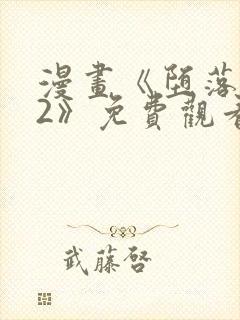 漫畫《堕落
2》免費觀看
武藤啓